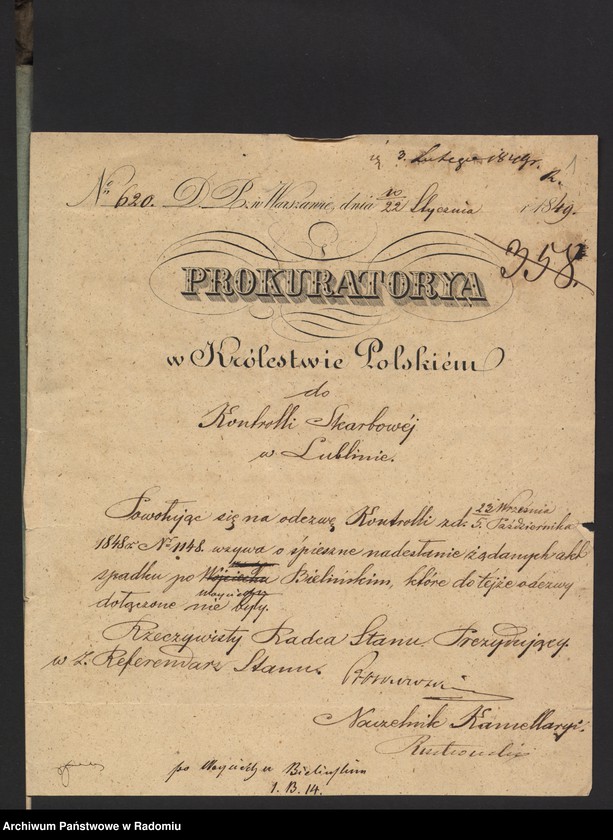 3. Lutego 1849r.
1
No 620. D. P. w Warszawie, dnia 10/22 Stycznia r. 1849.
358.
PROKURATORYA
w Królestwie Polskiém
do
Kontrolli Skarbowéj
w Lublinie.
Powołując się na odezwę Kontrolli z d. 23 Września/5. Października
1848 r. No 1148. wzywa o śpieszne nadesłanie żądanych akt
spadku po Wojciechu Bielińskim, które do tejże odezwy
dołączone nie były.
Rzeczywisty Radca Stanu Prezydujący.
w z. Referendarz Stanu.
Naczelnik Kancellaryi.
po Wojciechu Bielińskim
1. B. 14.
Archiwum Państwowe w Radomiu